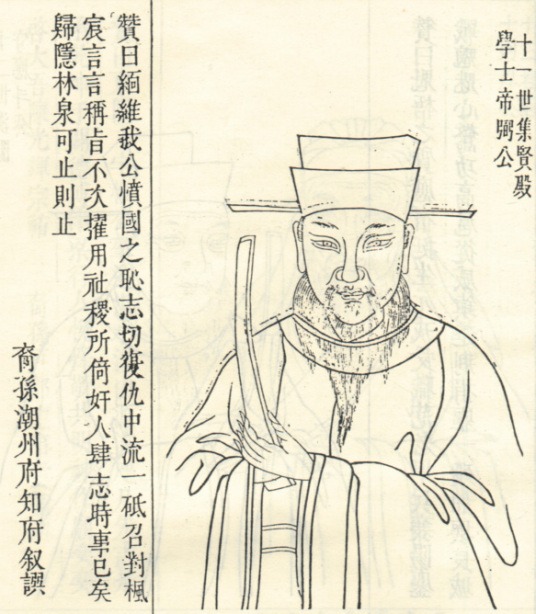 十一世集賢殿
學士帝弼公
贊曰緬維我公憤國之恥志切復仇中流一砥召對楓
宸言言稱旨不次擢用社稷所倚奸人肆志時事已矣
歸隱林泉可止則止
裔孫潮州府知府叙譔